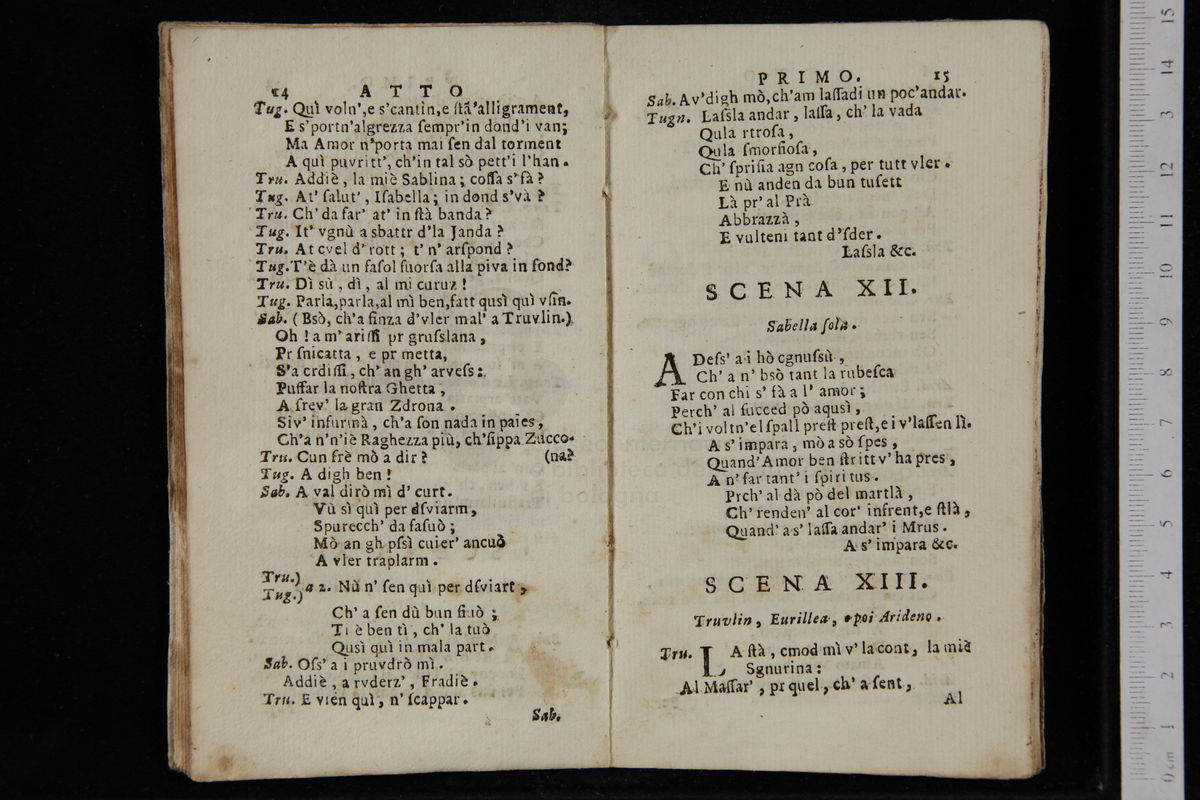 14 ATTO
Tug. Quì voln', e s'cantin, e ſtã'alligrament,
E s'portn'algrezza ſempr'in dond'i van;
Ma Amor n'porta mai ſen dal torment
A quì puvritt', ch'in tal sò pett'i l'han.
Tru. Addiè, la miè Sablina; coſſa s'fà?
Tug. At' ſalut', Iſabella; in dond s'và?
Tru. Ch' da far' at' in ſtà banda?
Tug. It' vgnù a sbattr d'la Janda?
Tru. At cvel d'rott; t' n' arſpond?
Tug. T'è dà un faſol fuorſa alla piva in fond?
Tru. Dì sù, dì, al mi curuz!
Tug. Parla, parla, al mì ben, fatt qusì quì vſin.
Sab. (Bsò, ch'a finza d'vler mal' a Truvlin.)
Oh! a m' ariſſi pr gruſslana,
Pr ſnicatta, e pr metta,
S'a crdiſſi, ch' an gh' arveſs:
Puffar la noſtra Ghetta,
A ſrev' la gran Zdrona.
Siv' infurmà, ch'a ſon nada in paies,
Ch'a n'n'iè Raghezza più, ch'ſippa Zucco-
Tru. Cun frè mò a dir? (na?
Tug. A digh ben!
Sab. A val dirò mì d' curt.
Vù sì quì per dſviarm,
Spurecch' da faſuò;
Mò an gh pſsì cuier' ancuò
A vler traplarm.
Tru.)
Tug.) a 2. Nù n' ſen quì per dſviart,
Ch' a ſen dù bun fiuò;
Ti è ben tì, ch' la tuò
Qusì quì in mala part.
Sab. Oſs' a i pruvdrò mì.
Addiè, a rvderz', Fradiè.
Tru. E vien quì, n' ſcappar.
Sab.
PRIMO. 15
Sab. Av'digh mò, ch'am laſſadi un poc'andar.
Tugn. Laſsla andar, laſſa, ch' la vada
Qula rtroſa,
Qula ſmorfioſa,
Ch' ſpriſia agn coſa, per tutt vler.
E nù anden da bun tuſett
Là pr' al Prà
Abbrazzà,
E vulteni tant d'ſder.
Laſsla &c.
SCENA XII.
Sabella ſola.
ADeſs' a i hò cgnuſsù,
Ch' a n' bsò tant la rubeſca
Far con chi s' fà a l' amor;
Perch' al ſucced pò aqusì,
Ch'i voltn'el ſpall preſt preſt, e i v'laſſen lì.
A s' impara, mò a sò ſpes,
Quand' Amor ben ſtritt v' ha pres,
A n' far tant' i ſpiritus.
Prch' al dà pò del martlà,
Ch' renden' al cor' infrent, e ſtlà,
Quand' a s' laſſa andar' i Mrus.
A s' impara &c.
SCENA XIII.
Truvlin, Eurillea, e poi Arideno.
Tru. LA ſtà, cmod mì v' la cont, la miè
Sgnurina:
Al Maſſar', pr quel, ch' a ſent,
Al